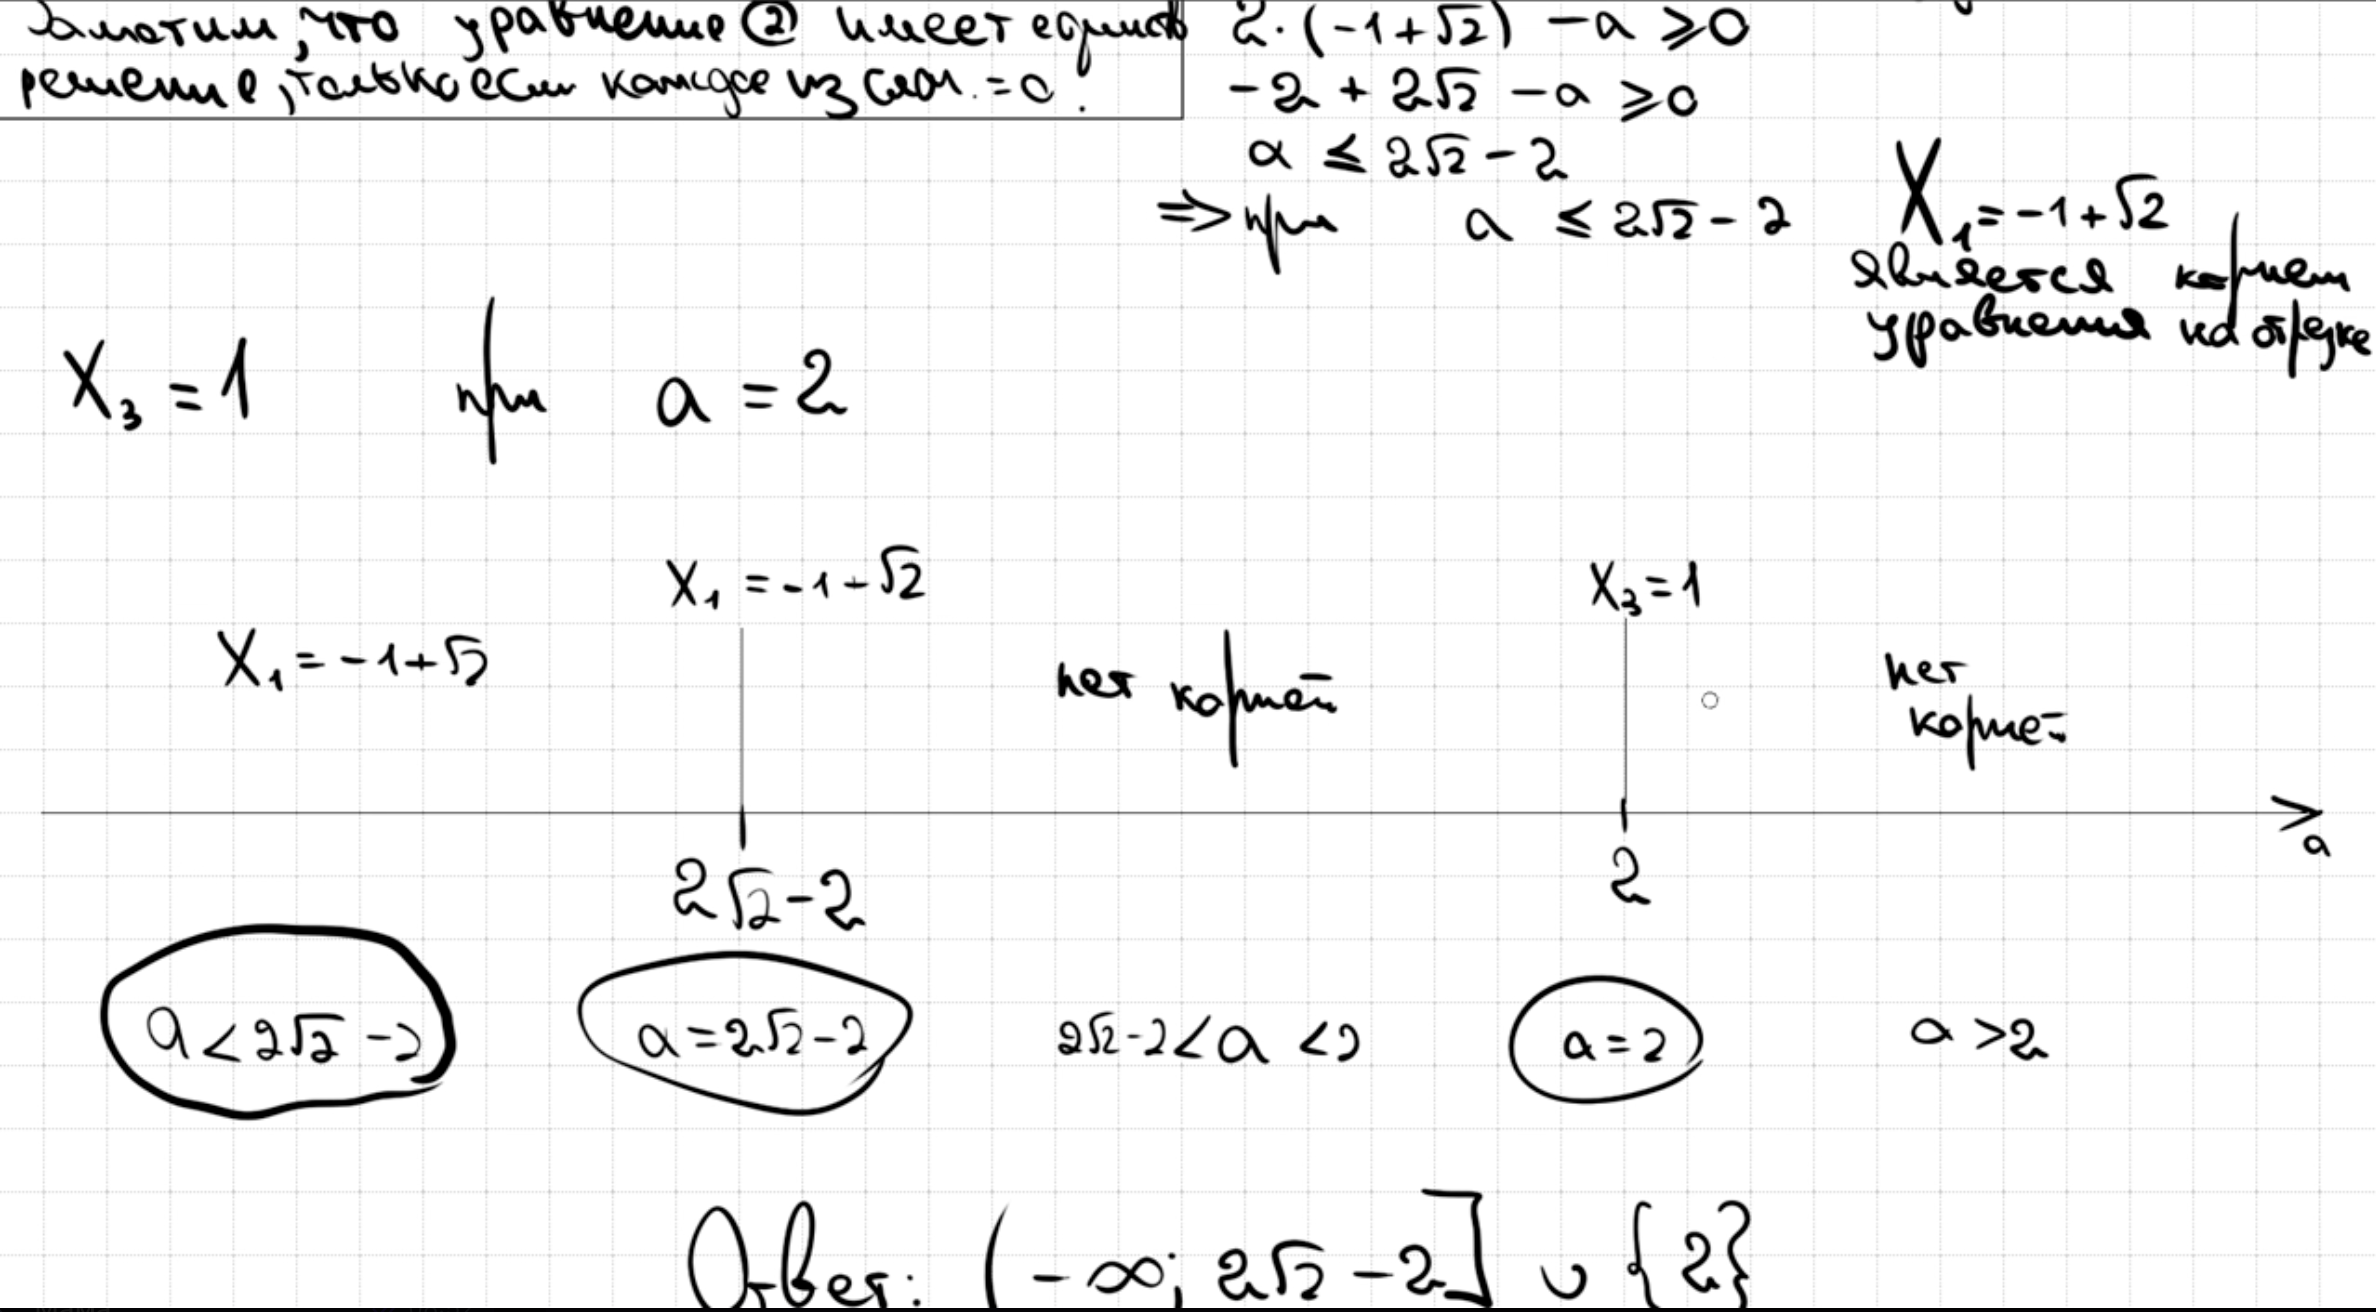 Заметим, что уравнение ② имеет единств
решение, только если каждое из слаг. = 0!
2·(-1+√2) -a ⩾0
-2 + 2√2 -a ⩾0
a ⩽ 2√2 - 2
=> при a ⩽ 2√2 - 2
X₁ = -1+√2
является корнем
уравнения на отрезке
X₃ = 1 при a = 2
X₁ = -1+√2
X₁ = -1+√2
нет корней
X₃ = 1
нет
корней
a
2√2-2
2
a < 2√2 -2
a = 2√2-2
2√2-2 < a < 2
a = 2
a > 2
Ответ: (-∞; 2√2 -2] ∪ {2}